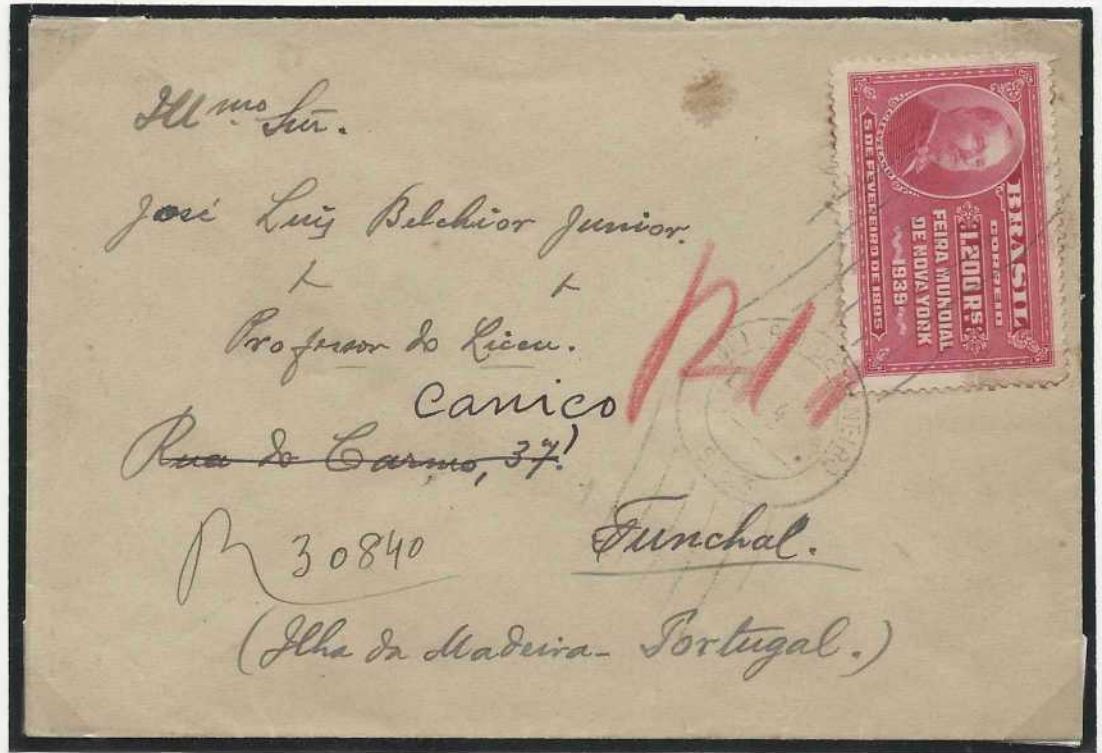 Illmo Snr.
José Luiz Belchior Junior.
Professor do Liceu.
Canico
Rua do Carmo, 37!
R 30840
Funchal.
(Ilha da Madeira - Portugal.)
BRASIL
CORREIO
1.200 RS.
FEIRA MUNDIAL
DE NOVA YORK
1939
5 DE FEVEREIRO DE 1895